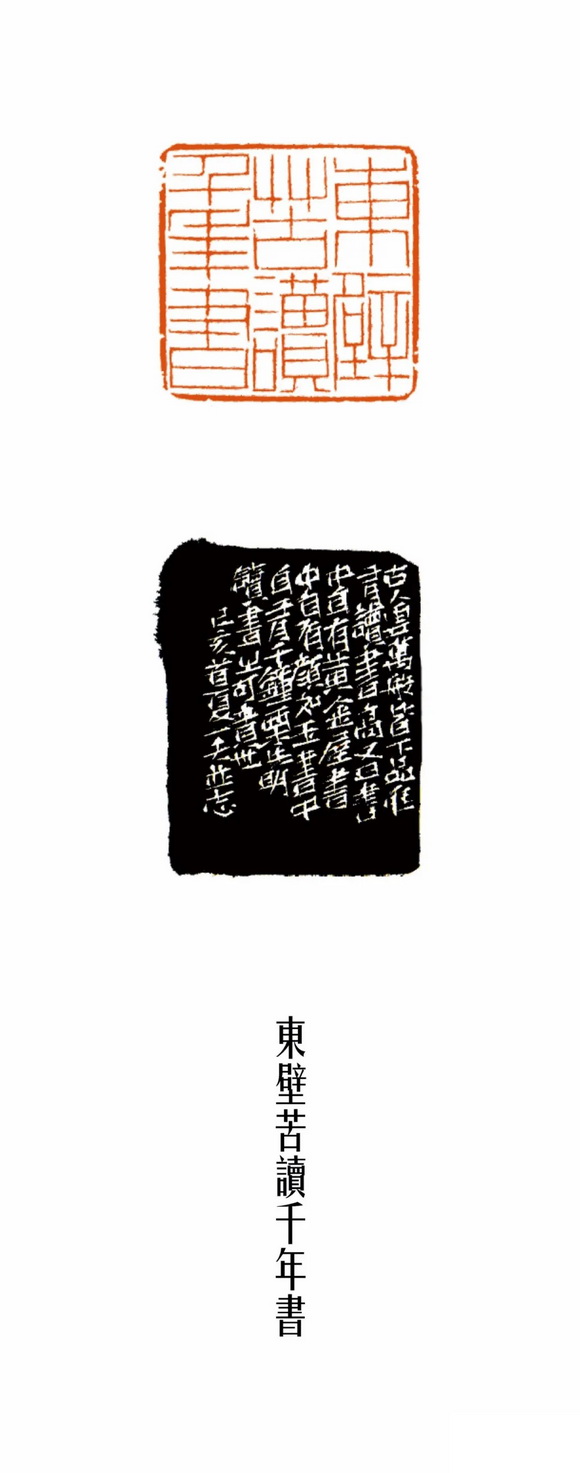 東壁
苦讀
千年書
古人萬般皆下品惟
讀書高又曰書
中自有黄金屋書
中自有顏如玉書中
自有千鐘粟明
讀書之可貴
己亥首夏志
東壁苦讀千年書